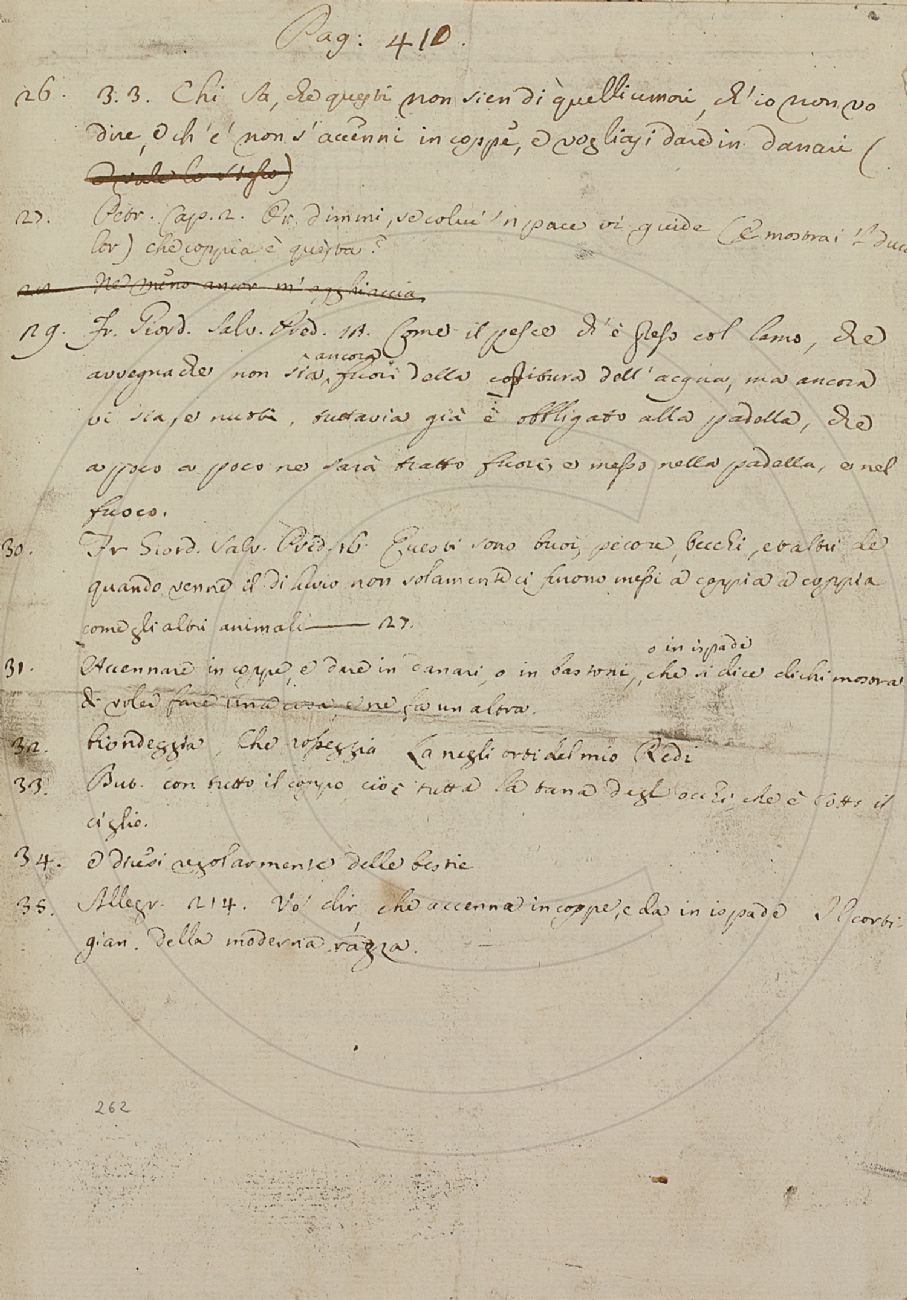 Pag: 410.
26. 3.3. Chi sa, che questi non sien di quelli umori, ch'io non vo
dire, e ch'e' non s'accenni in coppe, e vogliasi dare in danari (
e vale lo stesso)
27. Petr. Cap. 2. Or dimmi, se colui 'n pace vi guide (E mostrai 'l duca
lor) che coppia è questa?
Nè meno ancor m'agghiaccia
29. Fr. Giord. Salv. Pred. Come il pesce ch'è preso col lamo, che
avvegnachè non sia ancora fuori della dell'acqua, ma ancora
vi sia, e nuoti, tuttavia già è obbligato alla padella, che
a poco a poco ne sarà tratto fuori, e messo nella padella, e nel
fuoco.
30. Fr Giord. Salv. Pred. Questi sono buoi, pecore, becchi, et altri che
quando venne il diluvio non solamente ci furono messi a coppia a coppia
come gli altri animali 27.
o in ispade
31. Accennare in coppe, e dare in danari, o in bastoni, che si dice di chi mostra
di voler fare una cosa, e ne fa un altra.
32. biondeggia, Che rosseggia Là negli orti del mio Redi
33. But. con tutto il coppo, cioè tutta la tana degl'occhi, che è sotto il
ciglio.
34. e dicesi regolarmente delle bestie
35. Allegr. 214. Vo' dir, che accenna in coppe, e da in ispade Il corti-
gian. della moderna razza.
262